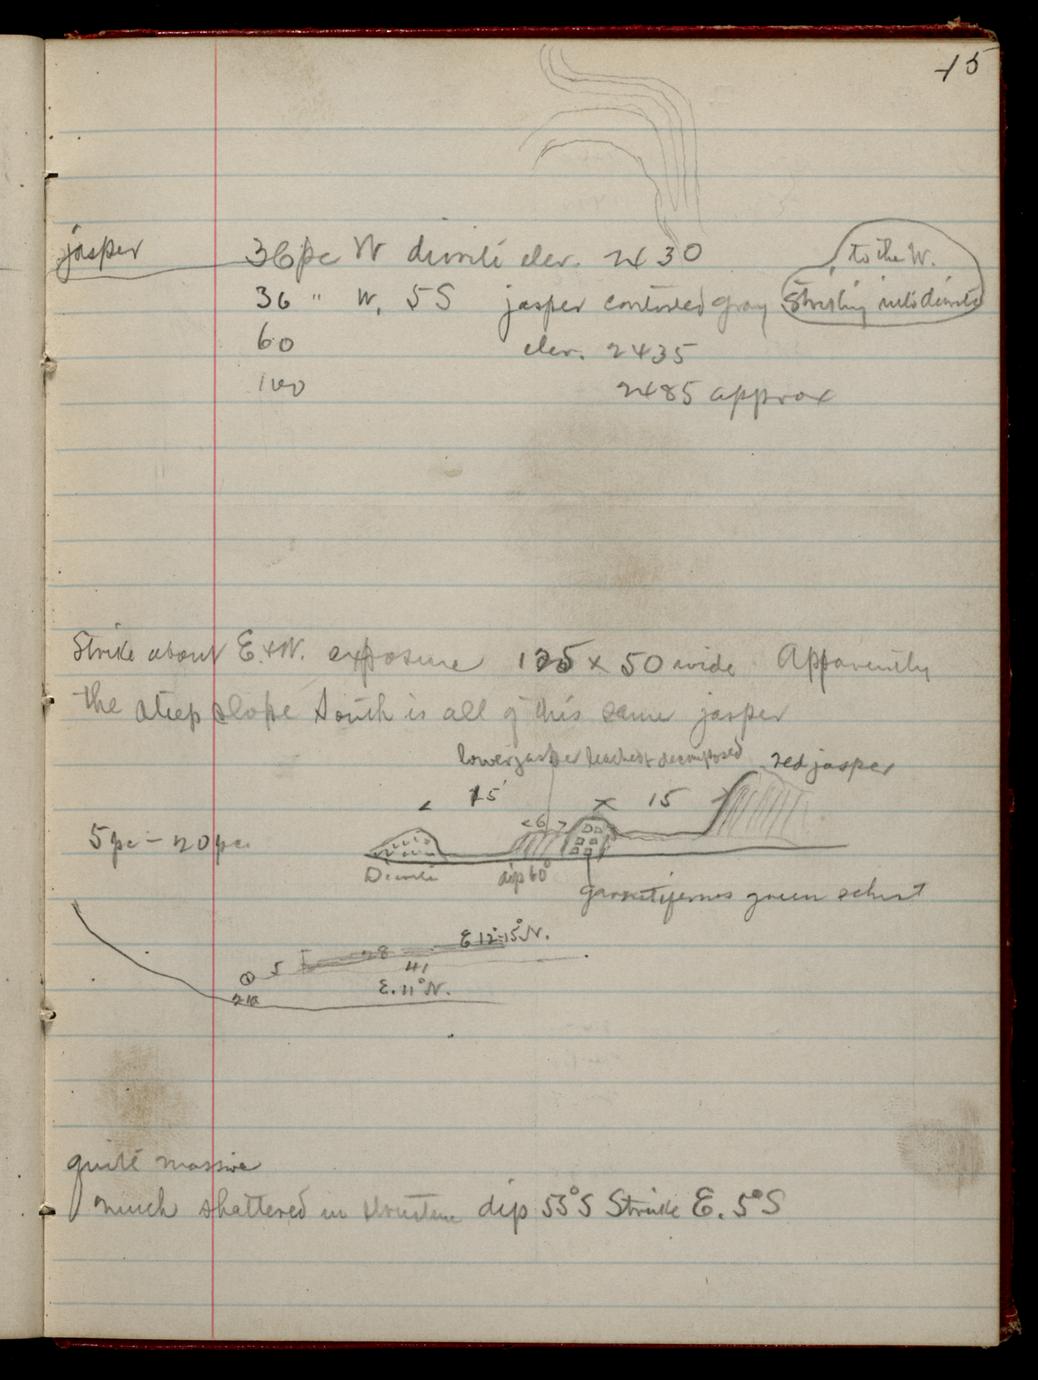 15
jasper 36 pc W diorite elev. 2430
to the W.
36 " W. 5 S jasper contorted gray Striking into diorite
60 elev. 2435
100 2485 approx
Strike about E. & W. exposure 125 x 50 wide. Apparently
the steep slope South is all of this same jasper
lower jasper leached & decomposed red jasper
15' 15
< 6 >
5 pc - 20 pc.
Diorite dip 60°
garnetiferous green schist
E 12-15° N.
5 28
41
E. 11° N.
210
quite massive
much shattered in structure dip 55° S Strike E. 5° S